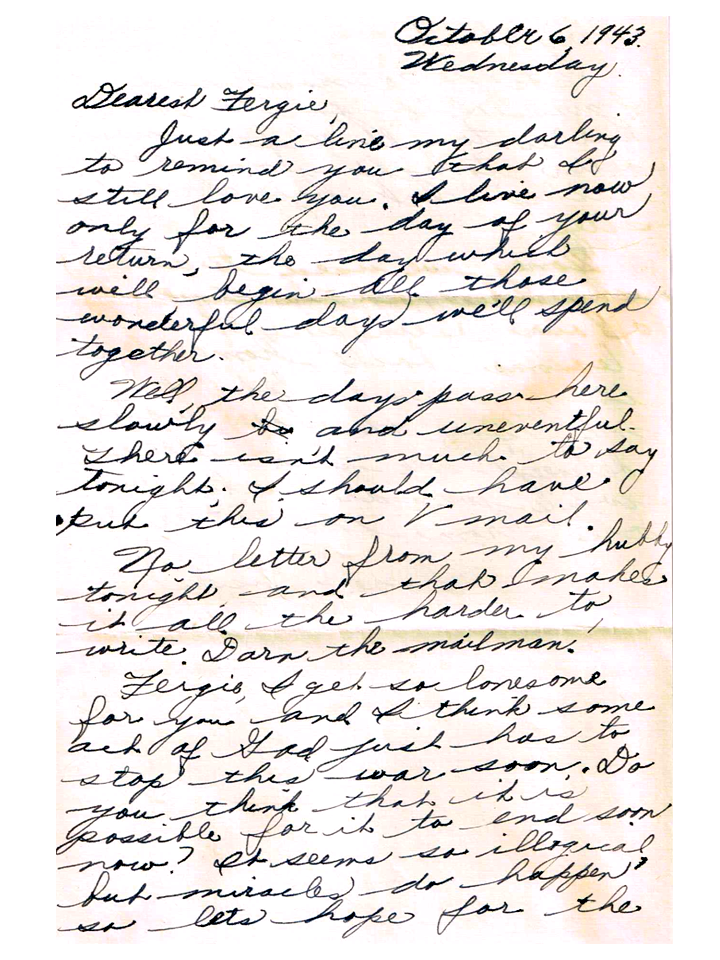 October 6, 1943.
Wednesday.
Dearest Fergie,
Just a line my darling
to remind you that I
still love you. I live now
only for the day of your
return, the day which
will begin all those
wonderful days we'll spend
together.
Well, the days pass here
slowly and uneventful.
There isn't much to say
tonight. I should have
put this on V mail.
No letter from my hubby
tonight and that makes
it all the harder to
write. Darn the mailman!
Fergie, I get so lonesome
for you and I think some
act of God just has to
stop this war soon. Do
you think that it is
possible for it to end soon
now? It seems so illogical
but miracles do happen
so lets hope for the